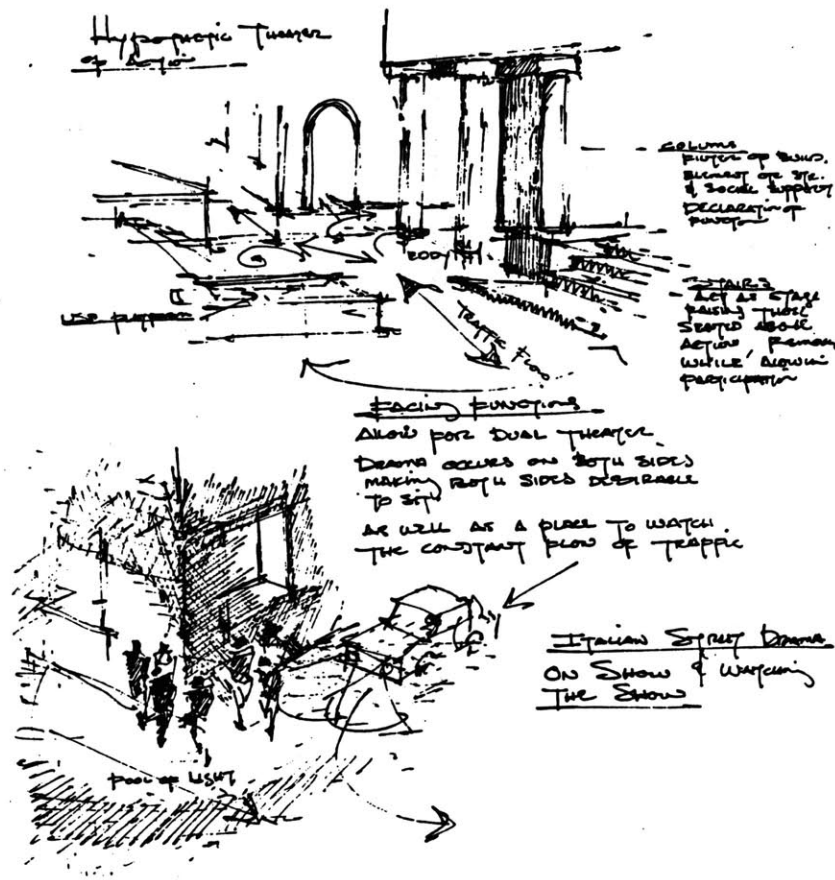 Hypothetic Theater
of Action
COLUMNS
FILTER OF BUILD.
ELEMENT OF STR.
& SOCIAL SUPPORT
DECLARATION OF
FUNCTION
STAIRS
ACT AS STAGE
RAISING THOSE
SEATED ABOVE
ACTION
WHILE ALLOWIN
PARTICIPATION
USE PLATFORM
TRAFFIC FLOW
FACING FUNCTIONS
ALLOW FOR DUAL THEATER
DRAMA OCCURS ON BOTH SIDES
MAKING BOTH SIDES DESIRABLE
TO SIT
AS WELL AS A PLACE TO WATCH
THE CONSTANT FLOW OF TRAFFIC
ITALIAN STREET DRAMA
ON SHOW & WATCHING
THE SHOW
POOL OF LIGHT